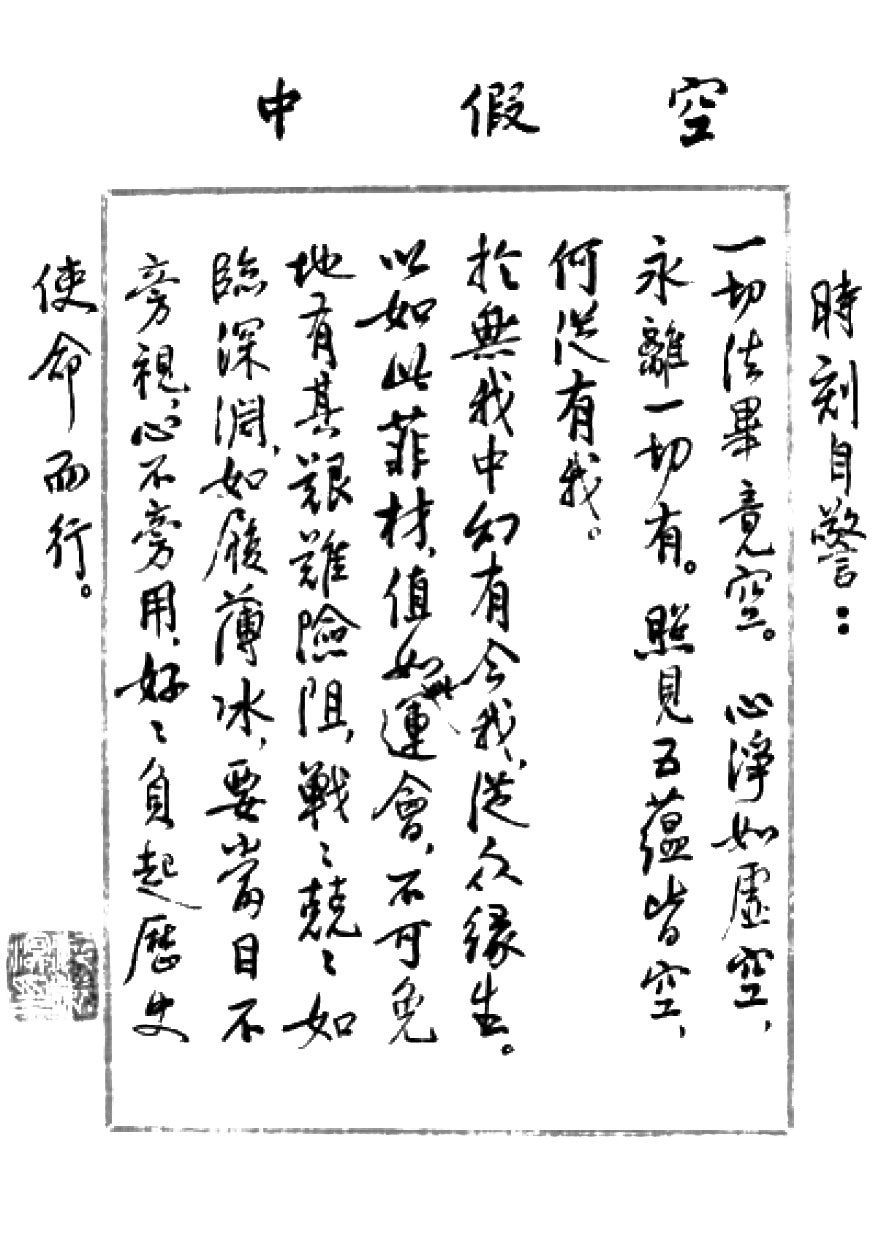 空 假 中
時刻自警：
一切法畢竟空。心淨如虛空，
永離一切有。照見五蘊皆空，
何從有我。
於無我中幻有今我，從众緣生。
以如此菲材，值如此運會，不可免
地有其艱難險阻，戰〻兢〻如
臨深淵，如履薄冰，要當目不
旁視，心不旁用，好〻負起歷史
使命而行。